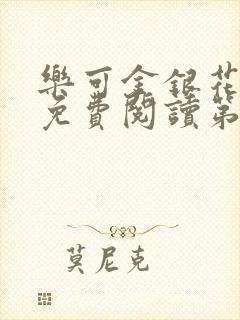 樂可金銀花
免費閱讀第
莫尼克